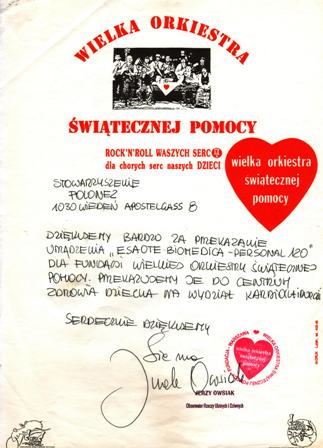 WIELKA ORKIESTRA
ŚWIĄTECZNEJ POMOCY
ROCK'N'ROLL WASZYCH SERC
dla chorych serc naszych DZIECI
wielka orkiestra
świątecznej
pomocy
STOWARZYSZENIE
POLONEZ
1030 WIEDEŃ APOSTELGASS 8
DZIĘKUJEMY BARDZO ZA PRZEKAZANIE
URZĄDZENIA "ESAOTE-BIOMEDICA-PERSONAL 120"
DLA FUNDACJI WIELKIEJ ORKIESTRY ŚWIĄTECZNEJ
POMOCY. PRZEKAZUJEMY JE DO CENTRUM
ZDROWIA DZIECKA NA WYDZIAŁ
SERDECZNIE DZIĘKUJEMY
Sie ma
Jurek Owsiak
wielka orkiestra
świątecznej
pomocy
JERZY OWSIAK
Obserwator Rzeczy Ulotnych i Dziwnych